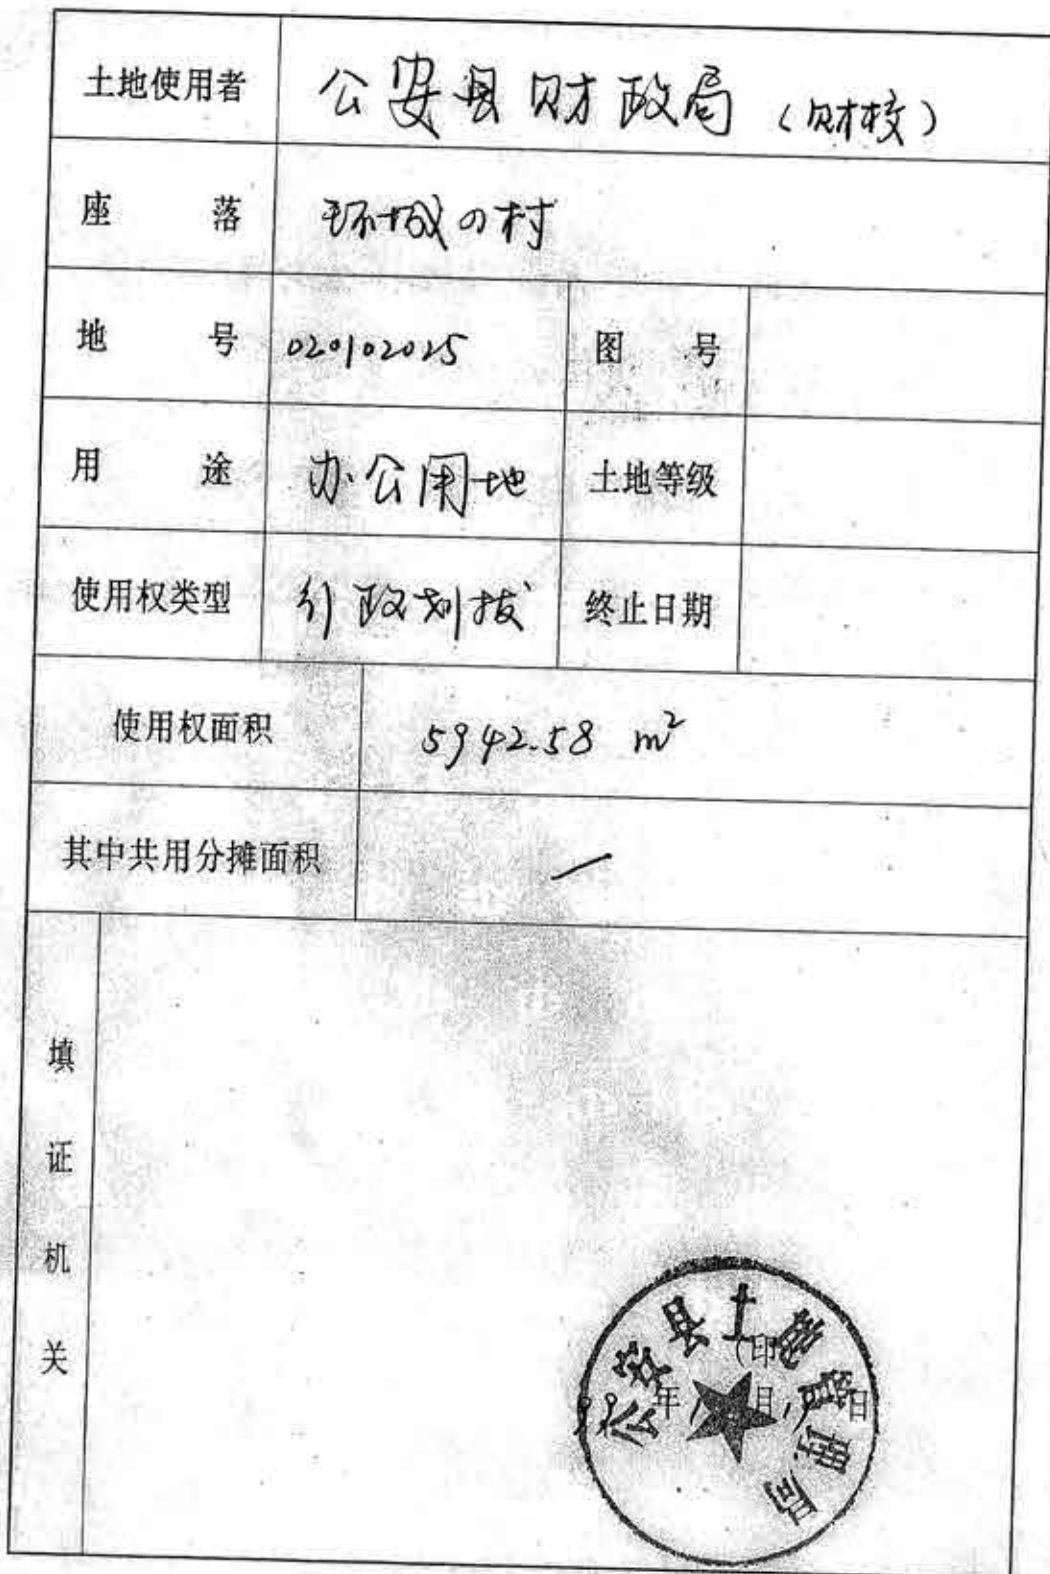 土地使用者 公安县财政局（财校）
座 落 环城の村
地 号 020102025 图 号
用 途 办公用地 土地等级
使用权类型 行政划拨 终止日期
使用权面积 5942.58 m²
其中共用分摊面积 一
填证机关
公安县土地管理局
（印
年 月 日